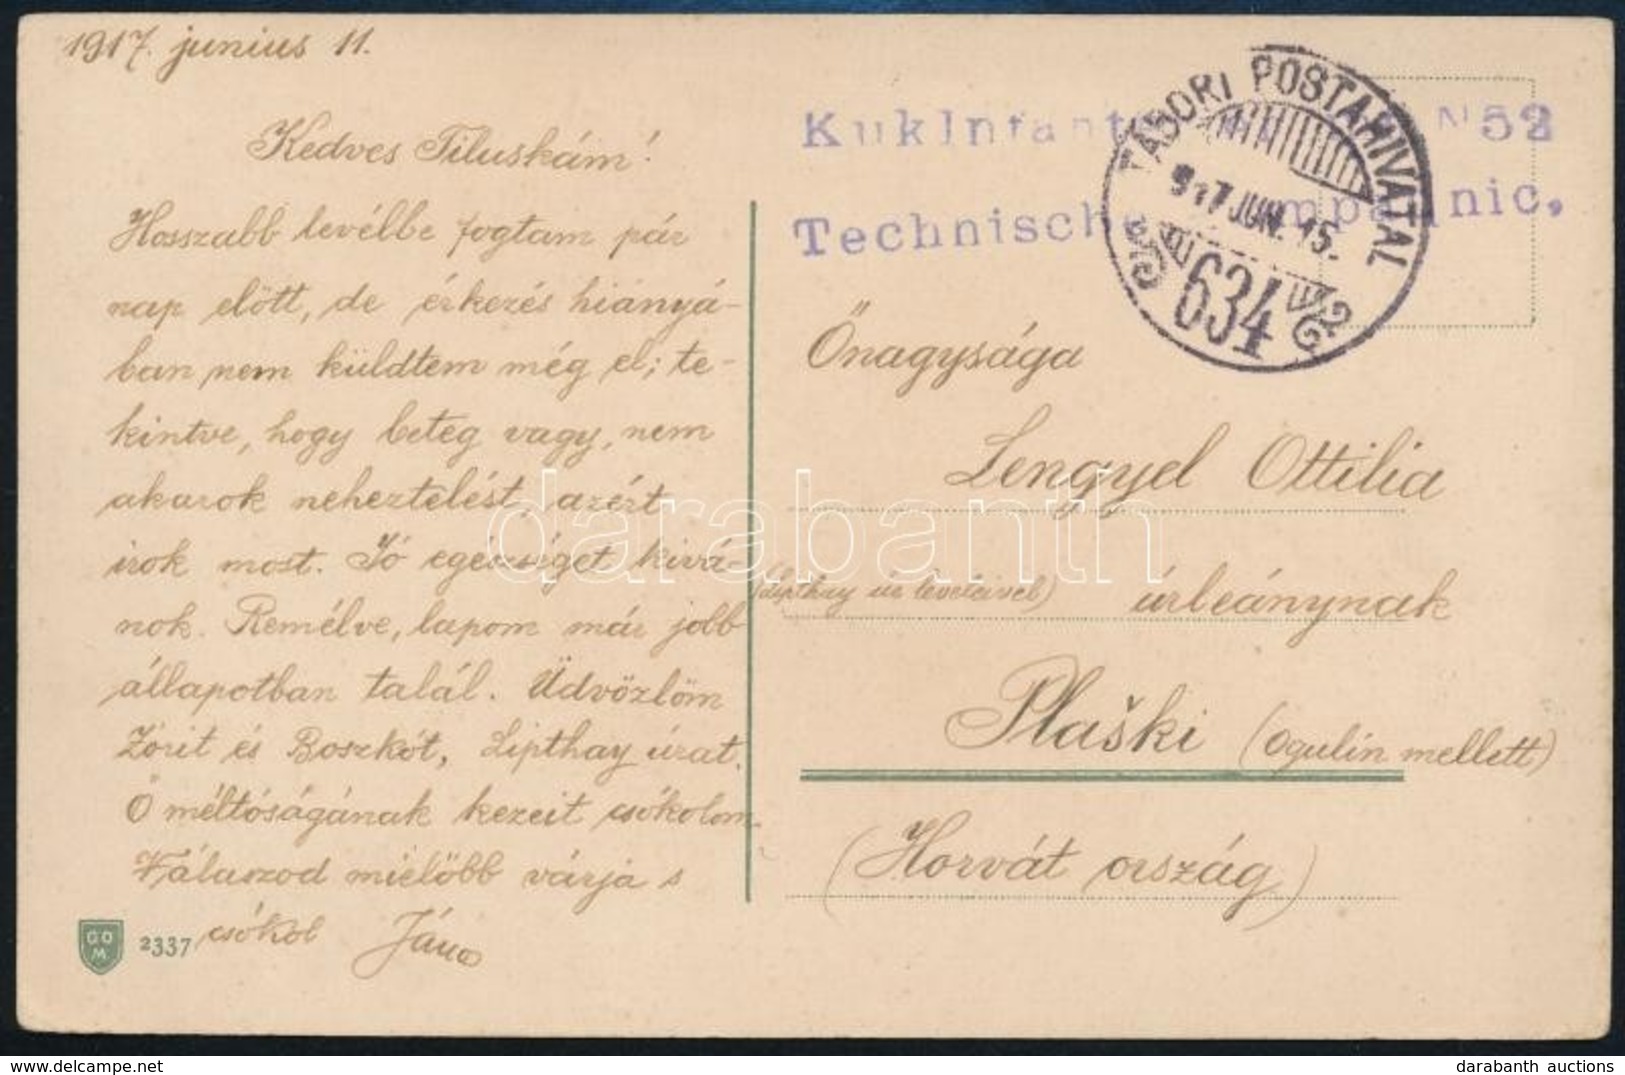 1917. junius 11.
Kedves Tiluskám!
Hosszabb levélbe fogtam pár
nap előtt, de érkezés hiányá-
ban nem küldtem még el; te-
kintve, hogy beteg vagy, nem
akarok neheztelést, azért
irok most. Jó egészséget kivá-
nok. Remélve, lapom már jobb
állapotban talál. Üdvözlöm
Zórit és Boszkót, Lipthay úrat.
Ő méltóságának kezeit csókolom.
Válaszod mielőbb várja s
csókol János
GO
M
2337
KukInfant N 52
Technische Kompagnie,
TÁBORI POSTAHIVATAL
917 JUN. 15.
634
Őnagysága
Lengyel Ottilia
(Lipthay úr leveleivel) úrleánynak
Plaški (Ogulin mellett)
(Horvát ország)
darabanth
darabanth auctions